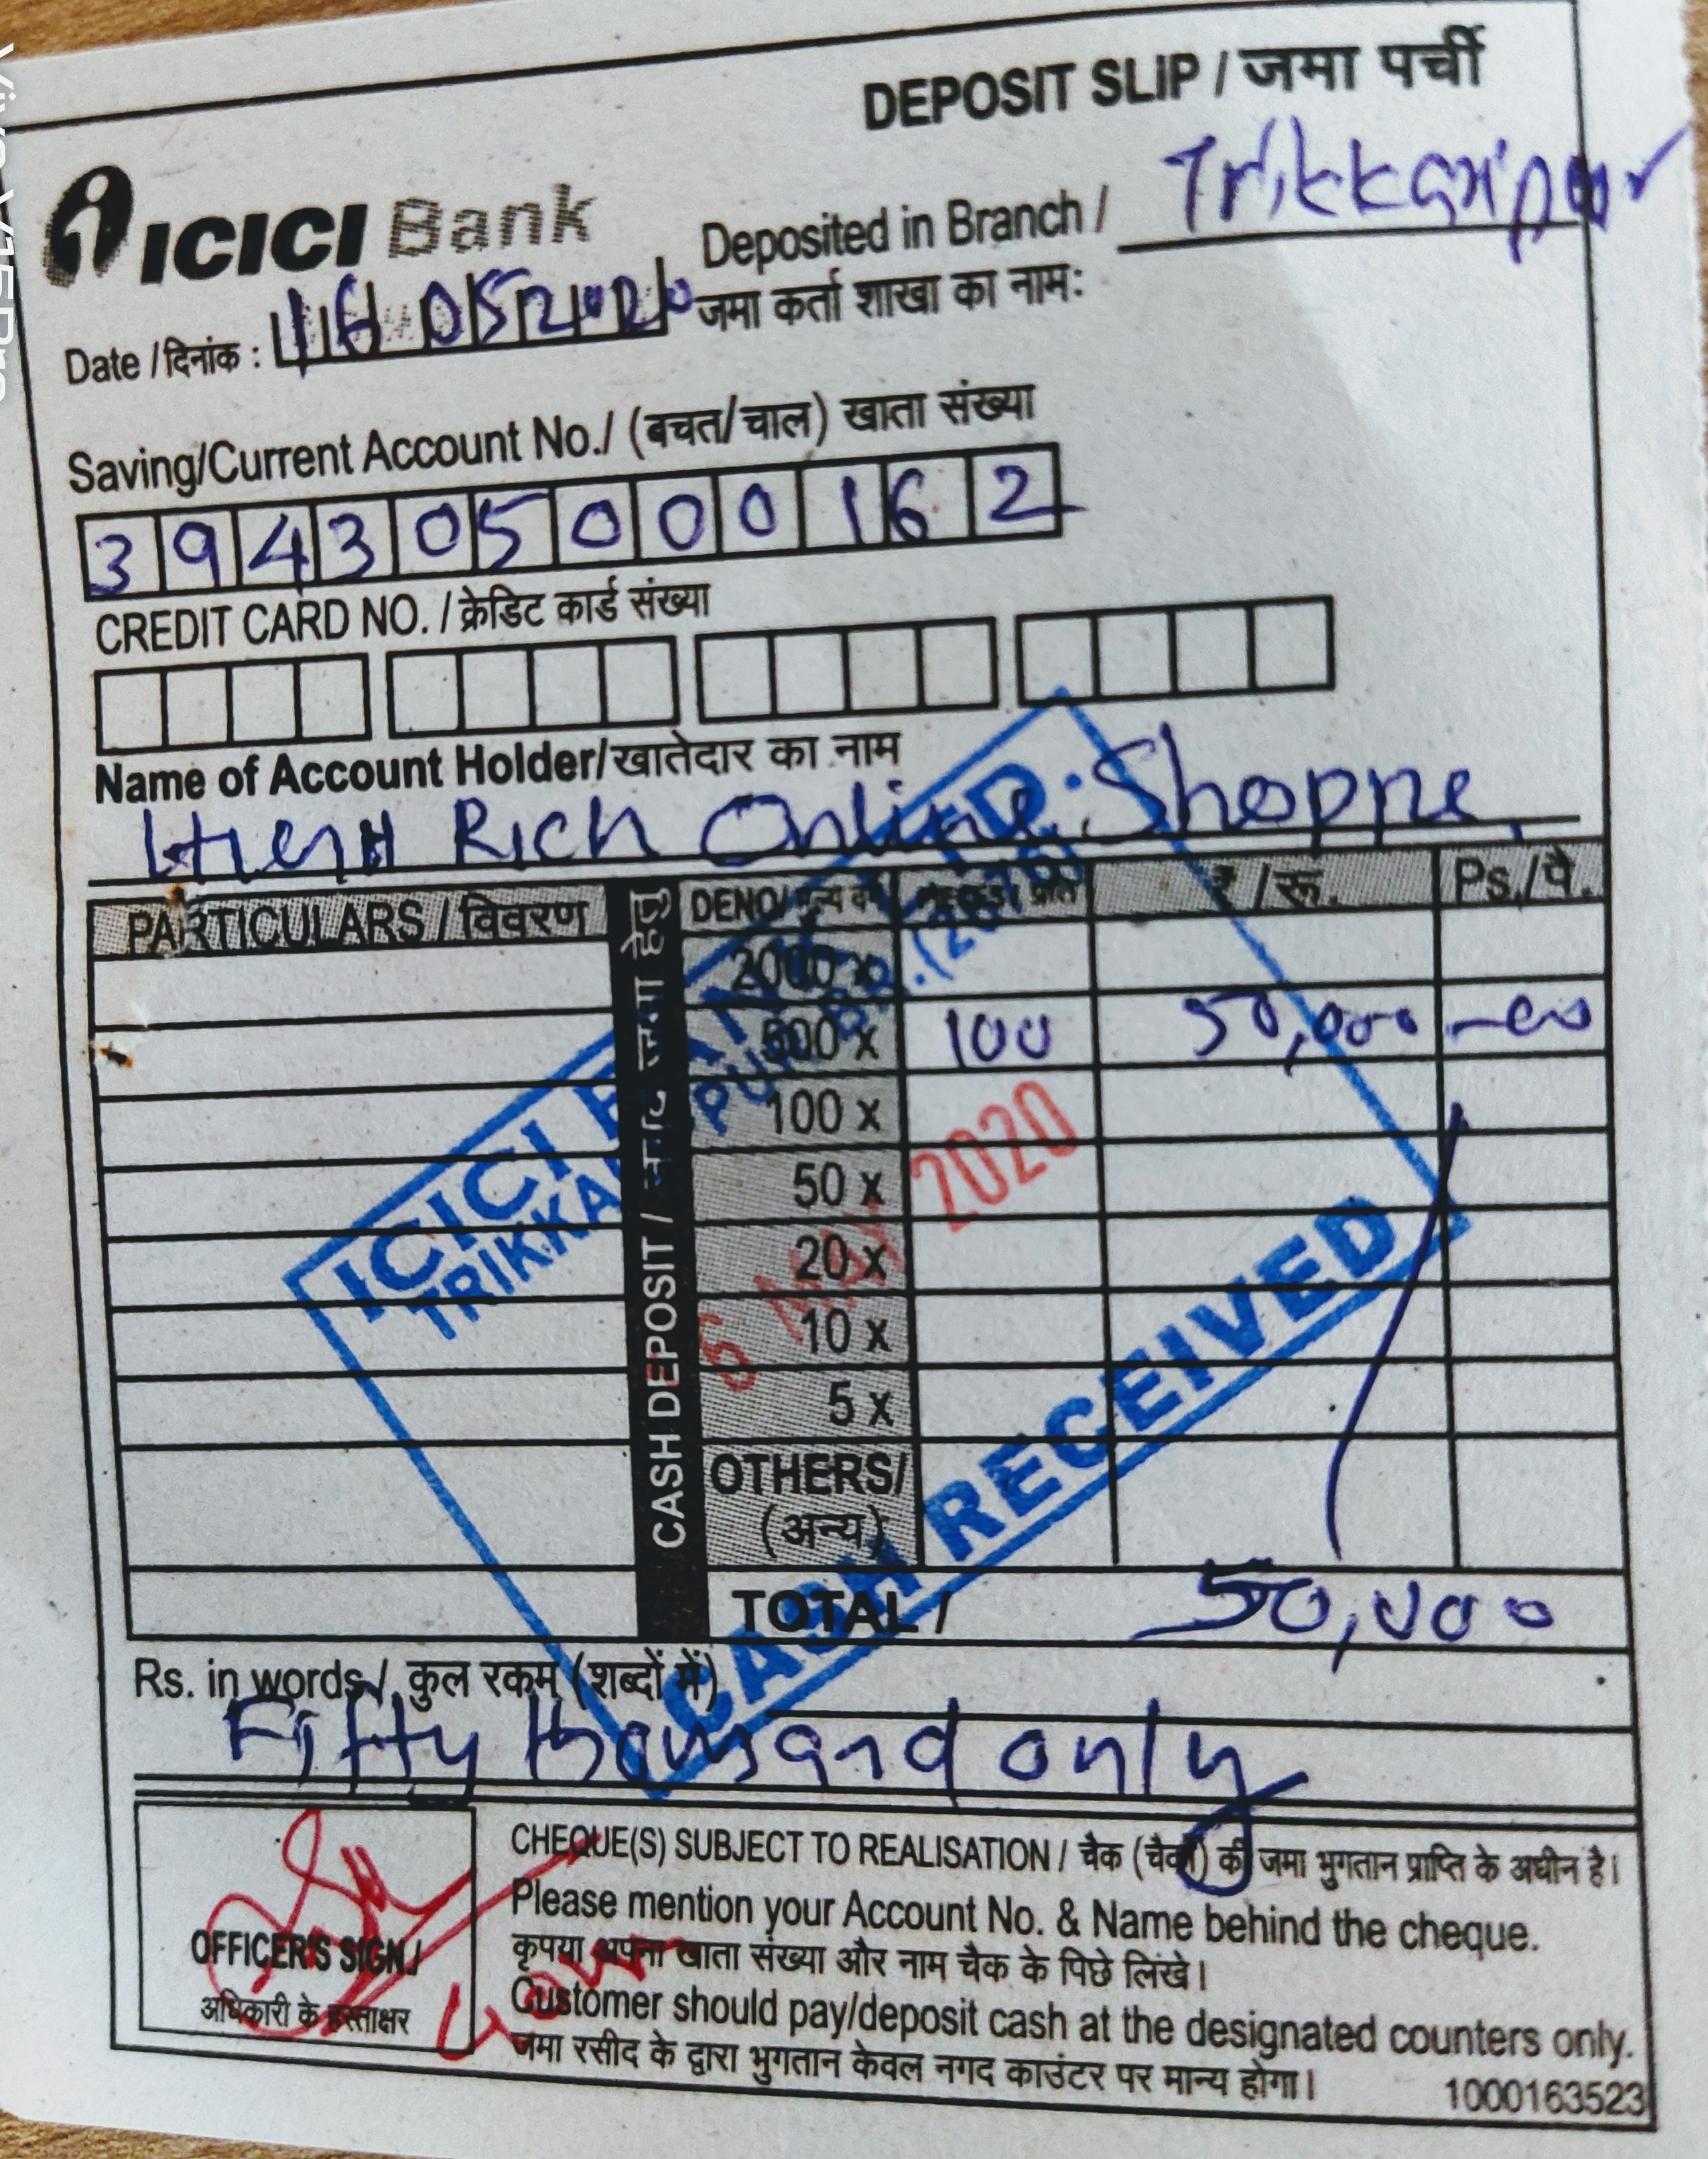 DEPOSIT SLIP / जमा पर्ची
ICICI Bank
Deposited in Branch / Trikkaripur
जमा कर्ता शाखा का नाम:
Date / दिनांक : 16 05 2020
Saving/Current Account No./ (बचत/चाल) खाता संख्या
394305000162
CREDIT CARD NO. / क्रेडिट कार्ड संख्या
Name of Account Holder/खातेदार का नाम
Rich Online Shoppe
PARTICULARS / विवरण
DENO/ ₹ / रू. Ps./पै.
2000 x
500 x 100 50,000 -00
100 x
50 x
20 x
10 x
5 x
OTHERS/
(अन्य)
CASH DEPOSIT /
TOTAL / 50,000
ICICI
MAY 2020
CASH RECEIVED
Rs. in words / कुल रकम (शब्दों में)
Fifty thousand only
OFFICER'S SIGN /
अधिकारी के हस्ताक्षर
CHEQUE(S) SUBJECT TO REALISATION / चैक (चैकों) की जमा भुगतान प्राप्ति के अधीन है।
Please mention your Account No. & Name behind the cheque.
कृपया अपना खाता संख्या और नाम चैक के पिछे लिंखे।
Customer should pay/deposit cash at the designated counters only.
जमा रसीद के द्वारा भुगतान केवल नगद काउंटर पर मान्य होगा।
1000163523